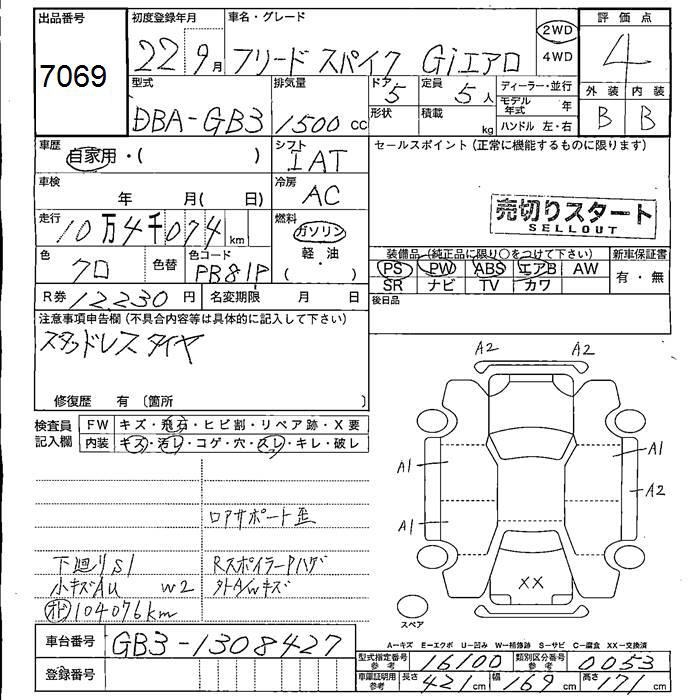 出品番号
7069
初度登録年月
22 9月
車名・グレード
フリード スパイク Giエアロ
2WD
4WD
評価点
4
外装 内装
B B
型式
DBA-GB3
排気量
1500 cc
ドア
5
定員
5人
形状
積載
kg
ディーラー・並行
モデル年式 年
ハンドル 左・右
車歴
自家用・( )
シフト
IAT
セールスポイント (正常に機能するものに限ります)
車検
年 月( 日)
冷房
AC
走行
10万4千074km
燃料
ガソリン
軽・油
( )
売切りスタート
SELLOUT
色
クロ
色替
色コード
PB81P
装備品 (純正品に限り○をつけて下さい)
PS PW ABS エアB AW
SR ナビ TV カワ
新車保証書
有・無
R券 12,230円
名変期限 月 日
後日品
注意事項申告欄 (不具合内容等は具体的に記入して下さい)
スタッドレスタイヤ
修復歴 有 〔箇所 〕
検査員記入欄
FW キズ・飛石・ヒビ割・リペア跡・X要
内装 キズ・汚レ・コゲ・穴・スレ・キレ・破レ
ロアサポート歪
下廻りS1
Rスポイラーハゲ
小キズAU W2
104076km
A2 A2
A1 A1
A2
A1
XX
スペア
A-キズ E-エクボ U-凹み W-補修跡 S-サビ C-腐食 XX-交換済
車台番号 GB3-1308427
登録番号
型式指定番号参考 16100
類別区分番号参考 0053
車庫証明用参考 長さ 421cm 幅 169cm 高さ 171cm